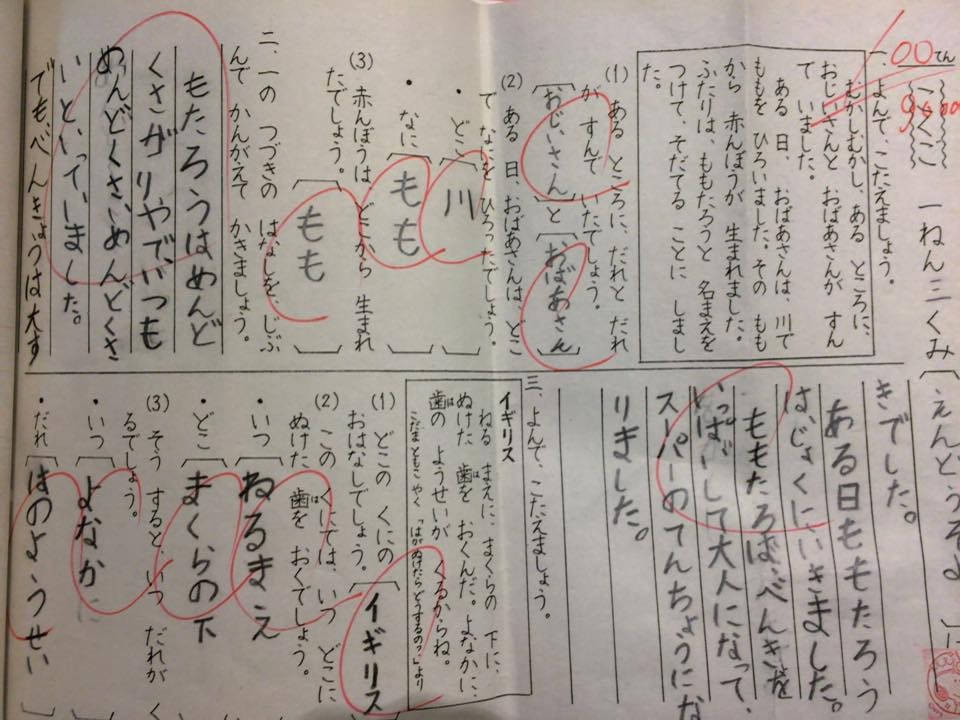 こくご 一ねん三くみ
00てん
一、よんで、こたえましょう。
むかしむかし、ある ところに、
おじいさんと おばあさんが すん
で いました。
ある 日、おばあさんは、川で
ももを ひろいました。その もも
から 赤んぼうが 生まれました。
ふたりは、ももたろうと 名まえを
つけて、そだてる ことに しまし
た。
(1) ある ところに、だれと だれ
が すんで いたでしょう。
おじいさん と おばあさん
(2) ある 日、おばあさんは、どこ
で なにを ひろったでしょう。
・どこ 川
・なに もも
(3) 赤んぼうは、どこから 生まれ
たでしょう。
もも
二、一の つづきの はなしを、じぶ
んで かんがえて かきましょう。
もたろうはめんど
くさがりやで、いつも
めんどくさ、めんどくさ
いといっていました。
でも、べんきょうは大す
きでした。
ある日ももたろう
は、じょくに、いきました。
ももたろはべんきょを
いっぱいして大人になって、
スーパーのてんちょうにな
りました。
三、よんで、こたえましょう。
イギリス
ねる まえに、まくらの 下に、
ぬけた 歯を おくんだ。よなかに、
歯の ようせいが くるからね。
こだまともこ やく 「はがぬけたらどうするの?」より
(1) どこの くにの
おはなしでしょう。
イギリス
(2) この くにでは、いつ どこに
ぬけた 歯を おくでしょう。
・いつ ねるまえ
・どこ まくらの下
(3) そう すると、いつ だれが く
るでしょう。
・いつ よなか
・だれ はのようせい